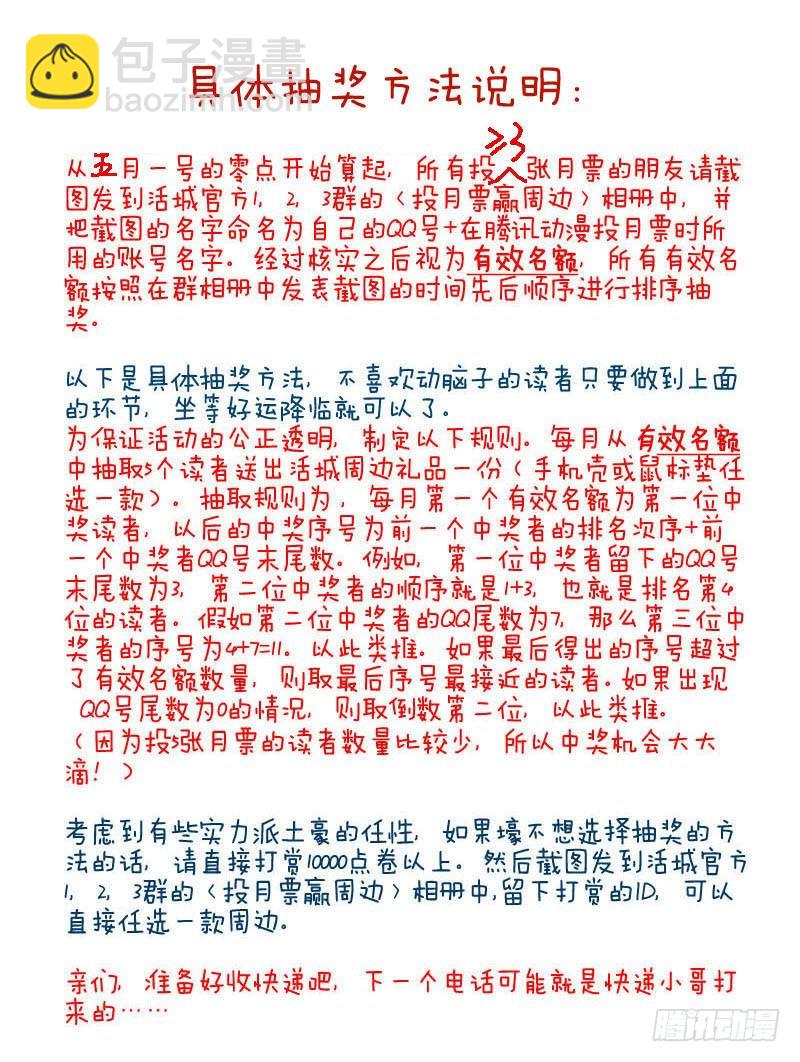 包子漫畫
baozimh.com
具体抽奖方法说明：
≥3
从五月一号的零点开始算起，所有投人张月票的朋友请截
图发到活城官方1，2，3群的（投月票赢周边）相册中，并
把截图的名字命名为自己的QQ号+在腾讯动漫投月票时所
用的账号名字。经过核实之后视为有效名额，所有有效名
额按照在群相册中发表截图的时间先后顺序进行排序抽
奖。
以下是具体抽奖方法，不喜欢动脑子的读者只要做到上面
的环节，坐等好运降临就可以了。
为保证活动的公正透明，制定以下规则。每月从有效名额
中抽取5个读者送出活城周边礼品一份（手机壳或鼠标垫任
选一款）。抽取规则为，每月第一个有效名额为第一位中
奖读者，以后的中奖序号为前一个中奖者的排名次序+前
一个中奖者QQ号末尾数。例如，第一位中奖者留下的QQ号
末尾数为3，第二位中奖者的顺序就是1+3，也就是排名第4
位的读者。假如第二位中奖者的QQ尾数为7，那么第三位中
奖者的序号为4+7=11。以此类推。如果最后得出的序号超过
了有效名额数量，则取最后序号最接近的读者。如果出现
QQ号尾数为0的情况，则取倒数第二位，以此类推。
（因为投5张月票的读者数量比较少，所以中奖机会大大
滴！）
考虑到有些实力派土豪的任性，如果壕不想选择抽奖的方
法的话，请直接打赏10000点卷以上。然后截图发到活城官方
1，2，3群的（投月票赢周边）相册中，留下打赏的ID，可以
直接任选一款周边。
亲们，准备好收快递吧，下一个电话可能就是快递小哥打
来的……
腾讯动漫